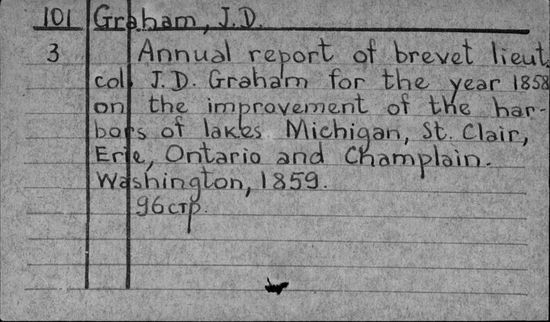 101 Graham, J.D.
3 Annual report of brevet lieut.
col. J.D. Graham for the year 1858
on the improvement of the har-
bors of lakes Michigan, St. Clair,
Erie, Ontario and Champlain.
Washington, 1859.
96 стр.